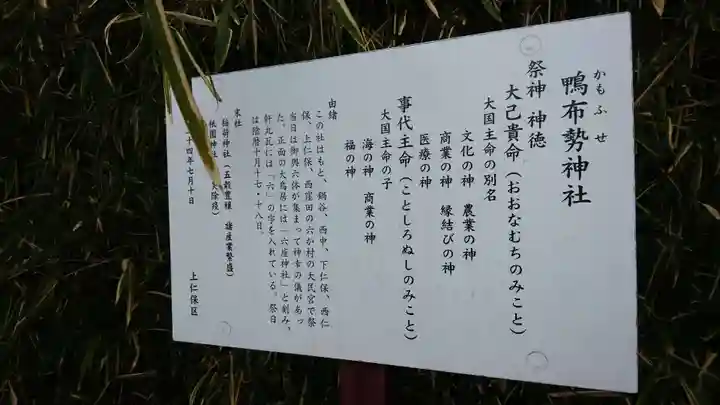 かもふせ
鴨布勢神社
祭神 神徳
大己貴命(おおなむちのみこと)
大国主命の別名
文化の神 農業の神
商業の神 縁結びの神
医療の神
事代主命(ことしろぬしのみこと)
大国主命の子
海の神 商業の神
福の神
由緒
この社はもと、鍋谷、西中、下仁保、西仁
保、上仁保、西窪田の六か村の大氏宮で祭
当日は御輿六体が集まって神幸の儀があっ
た。正面の大鳥居には「六座神社」と刻み、
軒丸瓦には「六」の字を入れている。祭日
は陰暦十月十七・十八日。
末社
稲荷神社(五穀豊穣 諸産業繁盛)
祇園神社 除疫)
十四年七月十日
上仁保区